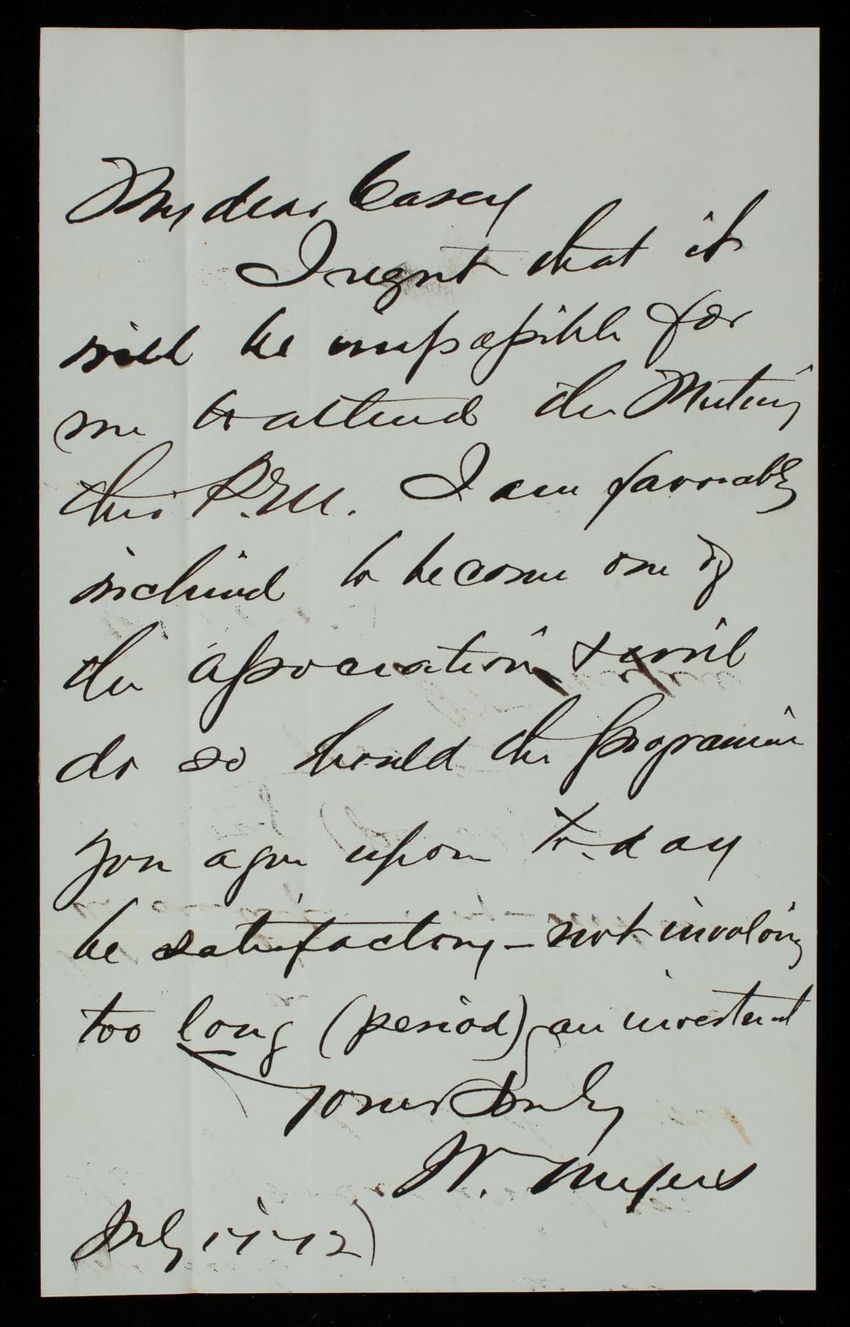 My dear Casey
I regret that it
will be impossible for
me to attend the Meeting
this P.M. I am favorably
inclined to become one of
the association & will
do so should the programme
you agree upon to-day
be satisfactory – not involving
too long (period) an investment
Yours truly
W. Myers
July 17-72)